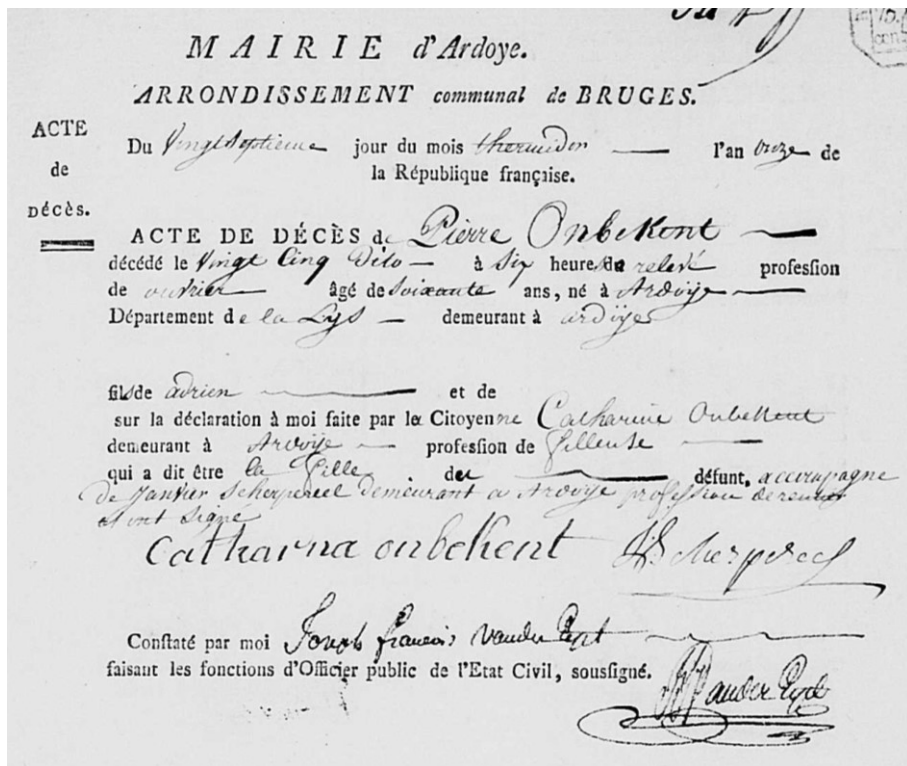 MAIRIE d'Ardoye.
ARRONDISSEMENT communal de BRUGES.
ACTE
de
DÉCÈS.
Du Vingt Septieme jour du mois thermidor l'an onze de
la République française.
ACTE DE DÉCÈS de Pierre Onbekent
décédé le Vingt Cinq Dito à Six heures de relevé profession
de ouvrier âgé de Soixante ans, né à Ardoÿe
Département de la Lys demeurant à ardoÿe
fils de adrien et de
sur la déclaration à moi faite par le Citoyenne Catharine Onbekent
demeurant à Ardoÿe profession de filleuse
qui a dit être la fille du défunt, accompagne
de Janvier Scherpereel demeurant a Ardoÿe profession de
et ont signé
Catharna onbekent Scherpereel
Constaté par moi Joseph francois vander Eyst
faisant les fonctions d'Officier public de l'Etat Civil, soussigné.